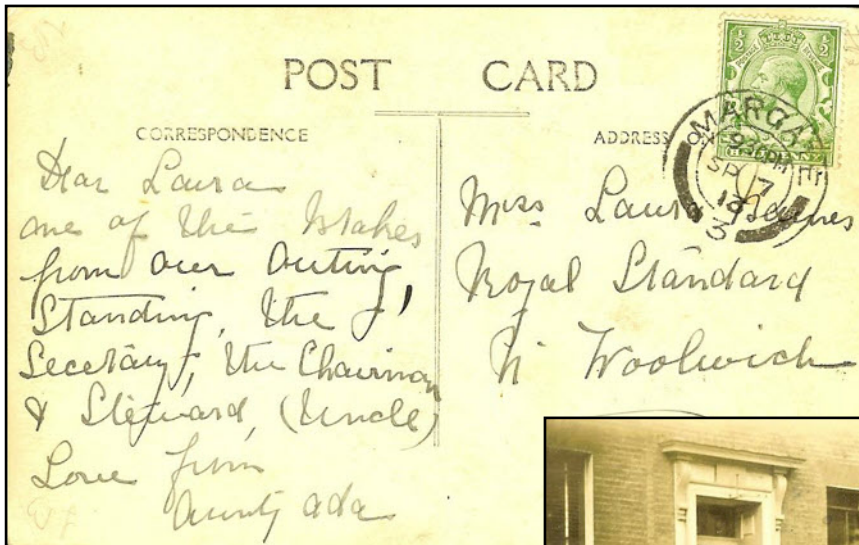 POST CARD
CORRESPONDENCE
ADDRESS ON
MARGATE
9 30 PM
SP 17
3
Dear Laura
one of the
from our outing,
Standing, the
Secetary, the Chairman
& Steward, (Uncle)
Love from
Aunty Ada
Miss Laura
Royal Standard
N Woolwich
½ ½